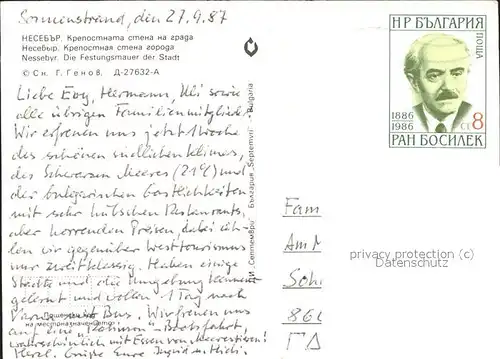 Sonnenstrand, den 27.9.87
НЕСЕБЪР. Крепостната стена на града
Несебыр. Крепостная стена города
Nessebyr. Die Festungsmauer der Stadt
© Сн. Г. Генов. Д-27632-А
НР БЪЛГАРИЯ
ПОЩА
1886
1986
СТ 8
РАН БОСИЛЕК
Liebe Evy, Hermann, Uli sowie
alle übrigen Familienmitglieder
Wir erfreuen uns jetzt 1 Woche
des schönen südlichen Klimas,
des Schwarzen Meeres (21°C) und
der bulgarischen Gastlichkeiten
mit sehr hübschen Restaurants,
aber horrenden Preisen, dabei
wir gegenüber Westtourismus
nur zweitklassig. Haben einige
Städte und die Umgebung kennen
gelernt und wollen 1 Tag nach
Varna mit Bus. Wir freuen uns
auf eine "Robinson"-Bootsfahrt,
wahrscheinlich mit Essen von Meerestieren!
Herzl. Grüße Eure Ingrid u.
на местоназначението
ДИ „Септември" · България „Septemvri" · Bulgaria
Fam
Am
privacy protection (c)
Datenschutz
Soh
860